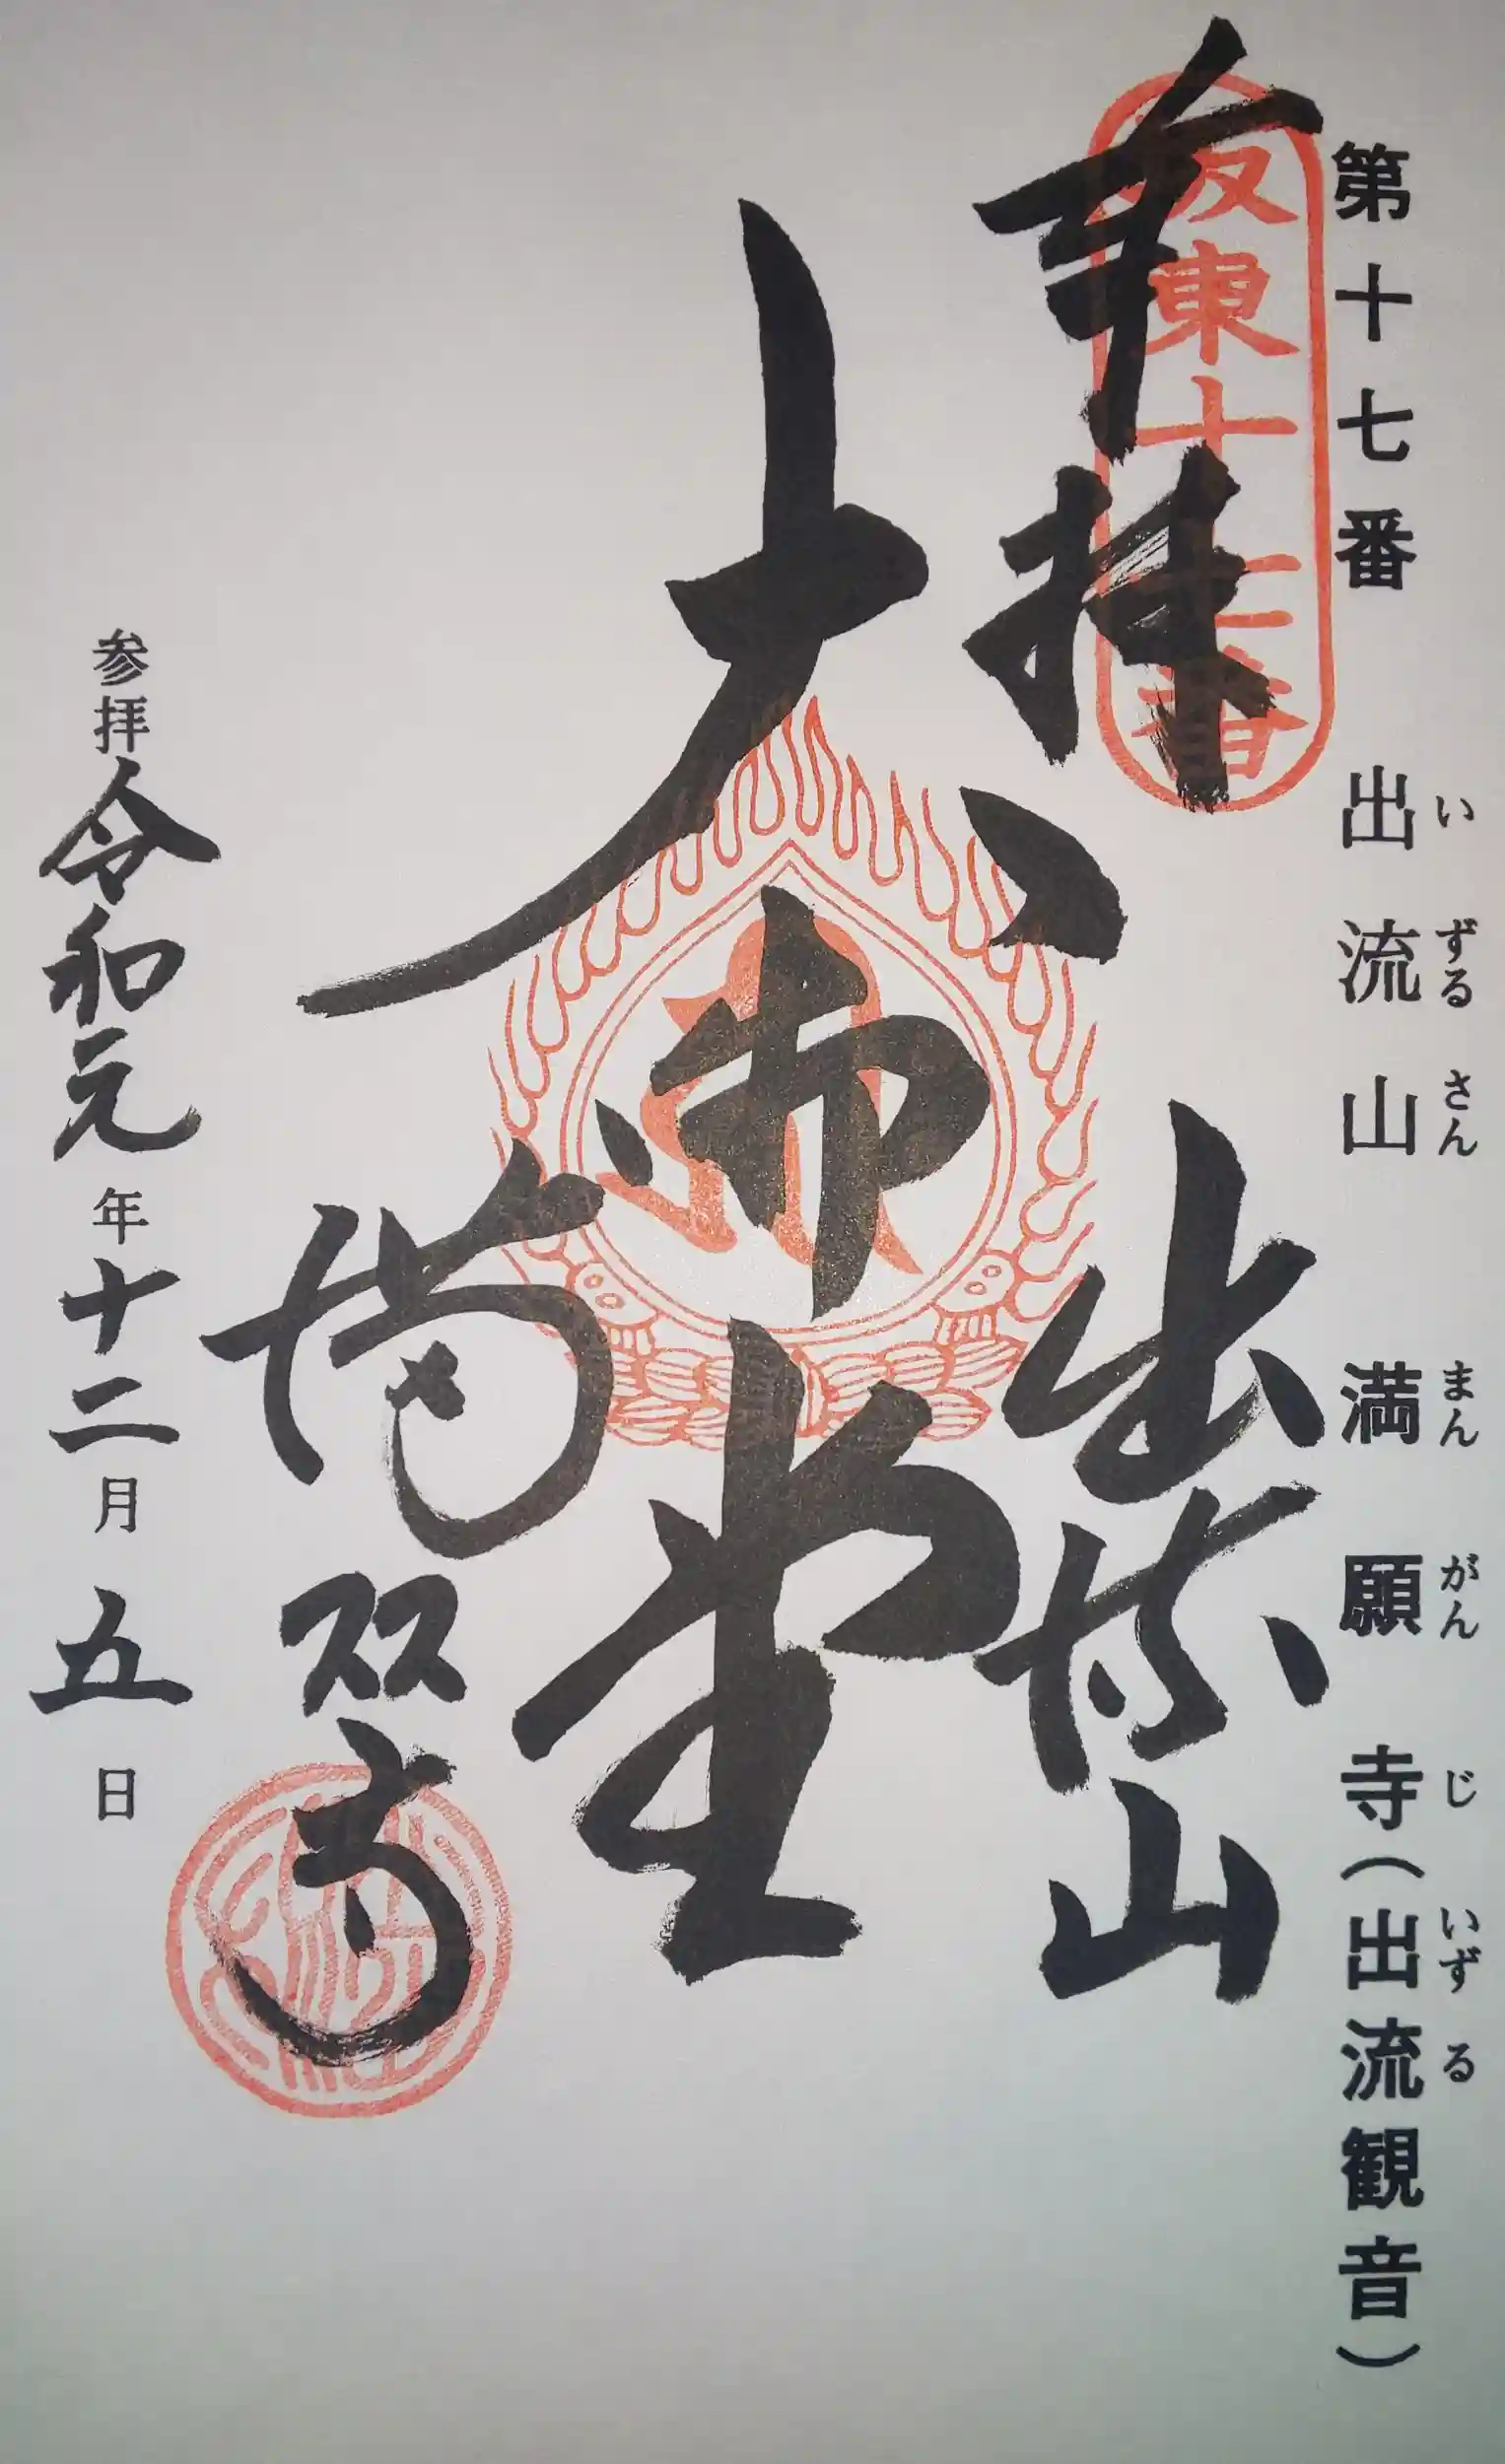 第十七番 出流山 満願寺(出流観音)
いずるさん まんがんじ いずる
坂東十七番
奉拝
出流山
大御堂
満願寺
参拝令和元年十二月五日